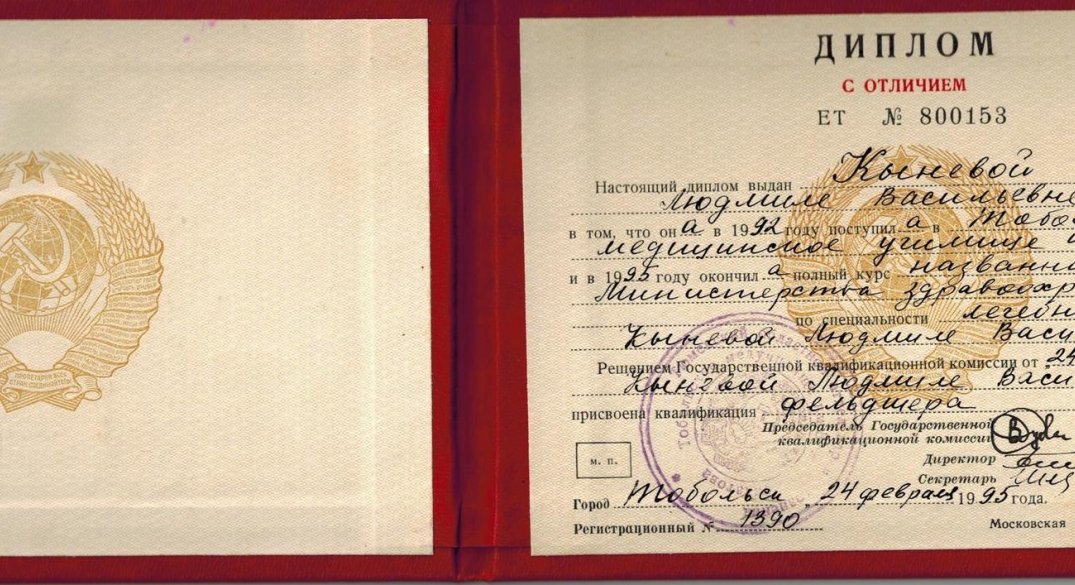 ДИПЛОМ
С ОТЛИЧИЕМ
ЕТ № 800153
Настоящий диплом выдан Кыневой
Людмиле Васильевне
в том, что он а в 1992 году поступил а в Тобо
медицинское училище
и в 1995 году окончил а полный курс названн
Министерства здравоохр
по специальности лечебн
Кыневой Людмиле Васи
Решением Государственной квалификационной комиссии от 24
Кыневой Людмиле Васи
присвоена квалификация фельдшера
Председатель Государственной
квалификационной комиссии
Директор
Секретарь
м. п.
Город Тобольск 24 февраля 1995 года.
Регистрационный № 1390
Московская